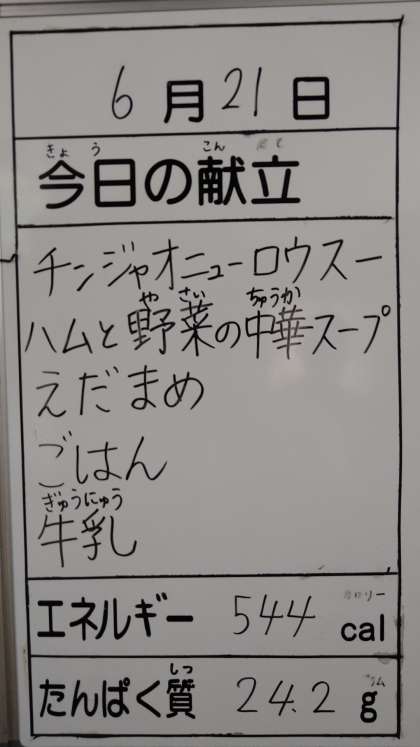 6月21日
きょう こん
今日の献立
チンジャオニューロウスー
や さい ちゅうか
ハムと野菜の中華スープ
えだまめ
ごはん
ぎゅうにゅう
牛乳
エネルギー 544 cal
しつ
たんぱく質 24.2 g